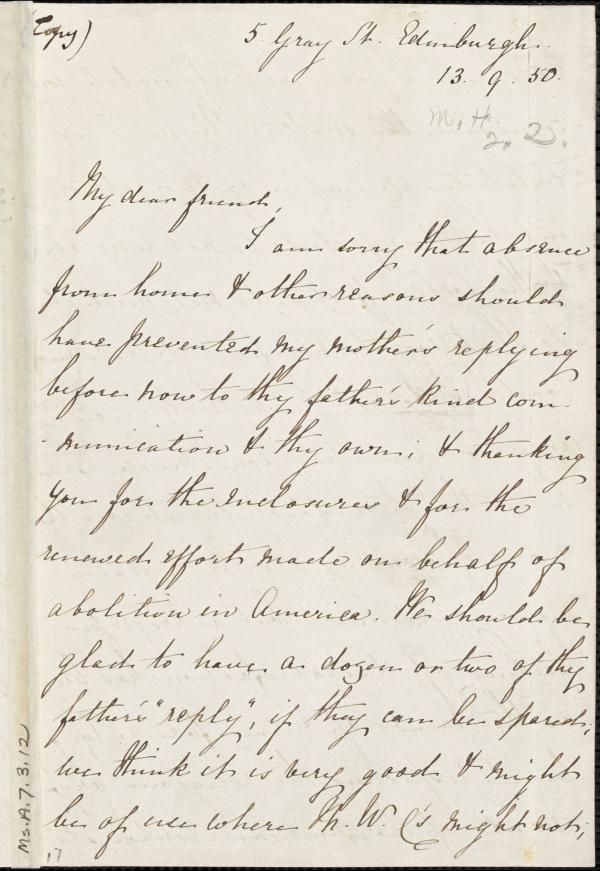 (Copy)
5 Gray St. Edinburgh.
13. 9. 50.
M. H.
2. 2.
My dear friend,
I am sorry that absence
from home & other reasons should
have prevented my mother's replying
before now to thy father's kind com-
-munication & thy own; & thanking
you for the enclosures & for the
renewed effort made on behalf of
abolition in America. We should be
glad to have a dozen or two of thy
father's "reply", if they can be spared;
we think it is very good & might
be of use where M. W. C's might not;
Ms. A. 7. 3. 12
17